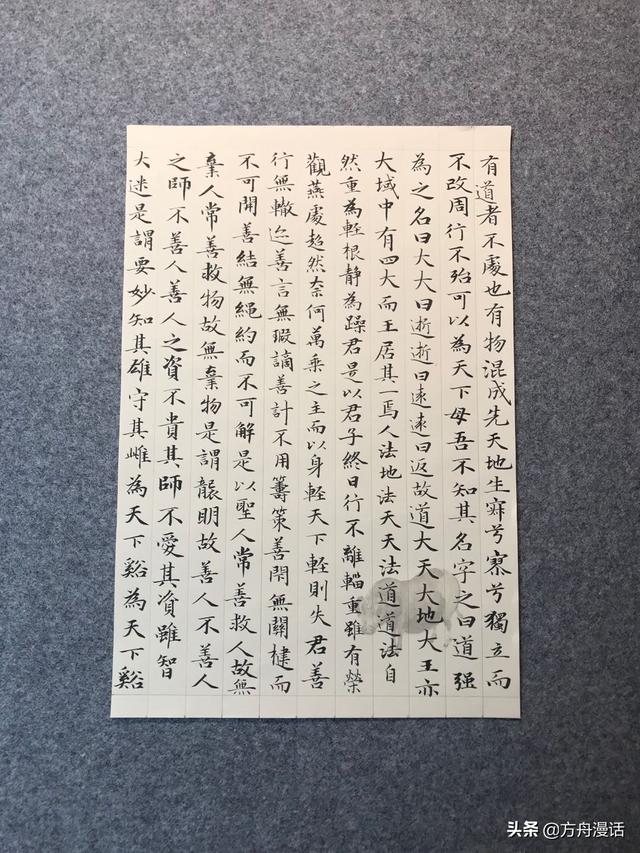 有道者不處也有物混成先天地生寂兮寥兮獨立而
不改周行不殆可以為天下母吾不知其名字之曰道强
為之名曰大大曰逝逝曰遠遠曰返故道大天大地大王亦
大域中有四大而王居其一焉人法地法天天法道道法自
然重為輕根静為躁君是以君子終日行不離輜重雖有榮
觀燕處超然奈何萬乘之主而以身輕天下輕則失君善
行無轍迹善言無瑕謫善計不用籌策善閉無關楗而
不可開善結無繩約而不可解是以聖人常善救人故無
棄人常善救物故無棄物是謂襲明故善人不善人
之師不善人善人之資不貴其師不愛其資雖智
大迷是謂要妙知其雄守其雌為天下谿為天下谿
头条@方舟漫话